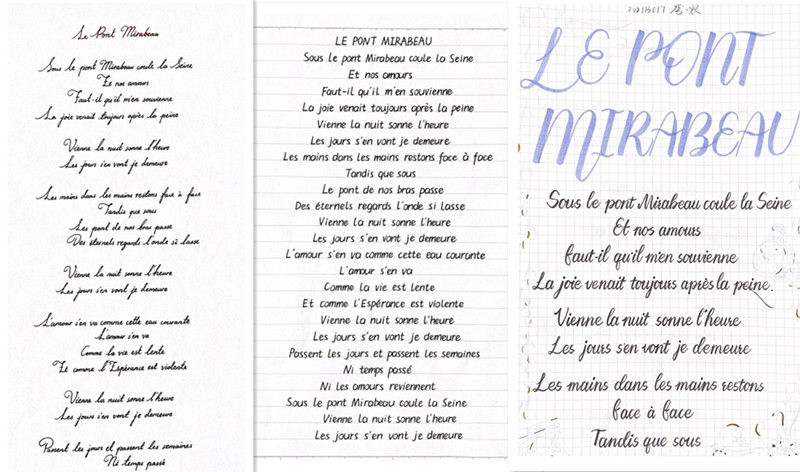 Le Pont Mirabeau
Sous le pont Mirabeau coule la Seine
Et nos amours
Faut-il qu'il m'en souvienne
La joie venait toujours après la peine
Vienne la nuit sonne l'heure
Les jours s'en vont je demeure
Les mains dans les mains restons face à face
Tandis que sous
Les pont de nos bras passe
Des éternels regards l'onde si lasse
Vienne la nuit sonne l'heure
Les jours s'en vont je demeure
L'amour s'en va comme cette eau courante
L'amour s'en va
Comme la vie est lente
Et comme l'Espérance est violente
Vienne la nuit sonne l'heure
Les jours s'en vont je demeure
Passent les jours et passent les semaines
Ni temps passé
LE PONT MIRABEAU
Sous le pont Mirabeau coule la Seine
Et nos amours
Faut-il qu'il m'en souvienne
La joie venait toujours après la peine
Vienne la nuit sonne l'heure
Les jours s'en vont je demeure
Les mains dans les mains restons face à face
Tandis que sous
Le pont de nos bras passe
Des éternels regards l'onde si lasse
Vienne la nuit sonne l'heure
Les jours s'en vont je demeure
L'amour s'en va comme cette eau courante
L'amour s'en va
Comme la vie est lente
Et comme l'Espérance est violente
Vienne la nuit sonne l'heure
Les jours s'en vont je demeure
Passent les jours et passent les semaines
Ni temps passé
Ni les amours reviennent
Sous le pont Mirabeau coule la Seine
Vienne la nuit sonne l'heure
Les jours s'en vont je demeure
LE PONT
MIRABEAU
Sous le pont Mirabeau coule la Seine
Et nos amours
faut-il qu'il m'en souvienne
La joie venait toujours après la peine.
Vienne la nuit sonne l'heure
Les jours s'en vont je demeure
Les mains dans les mains restons
face à face
Tandis que sous